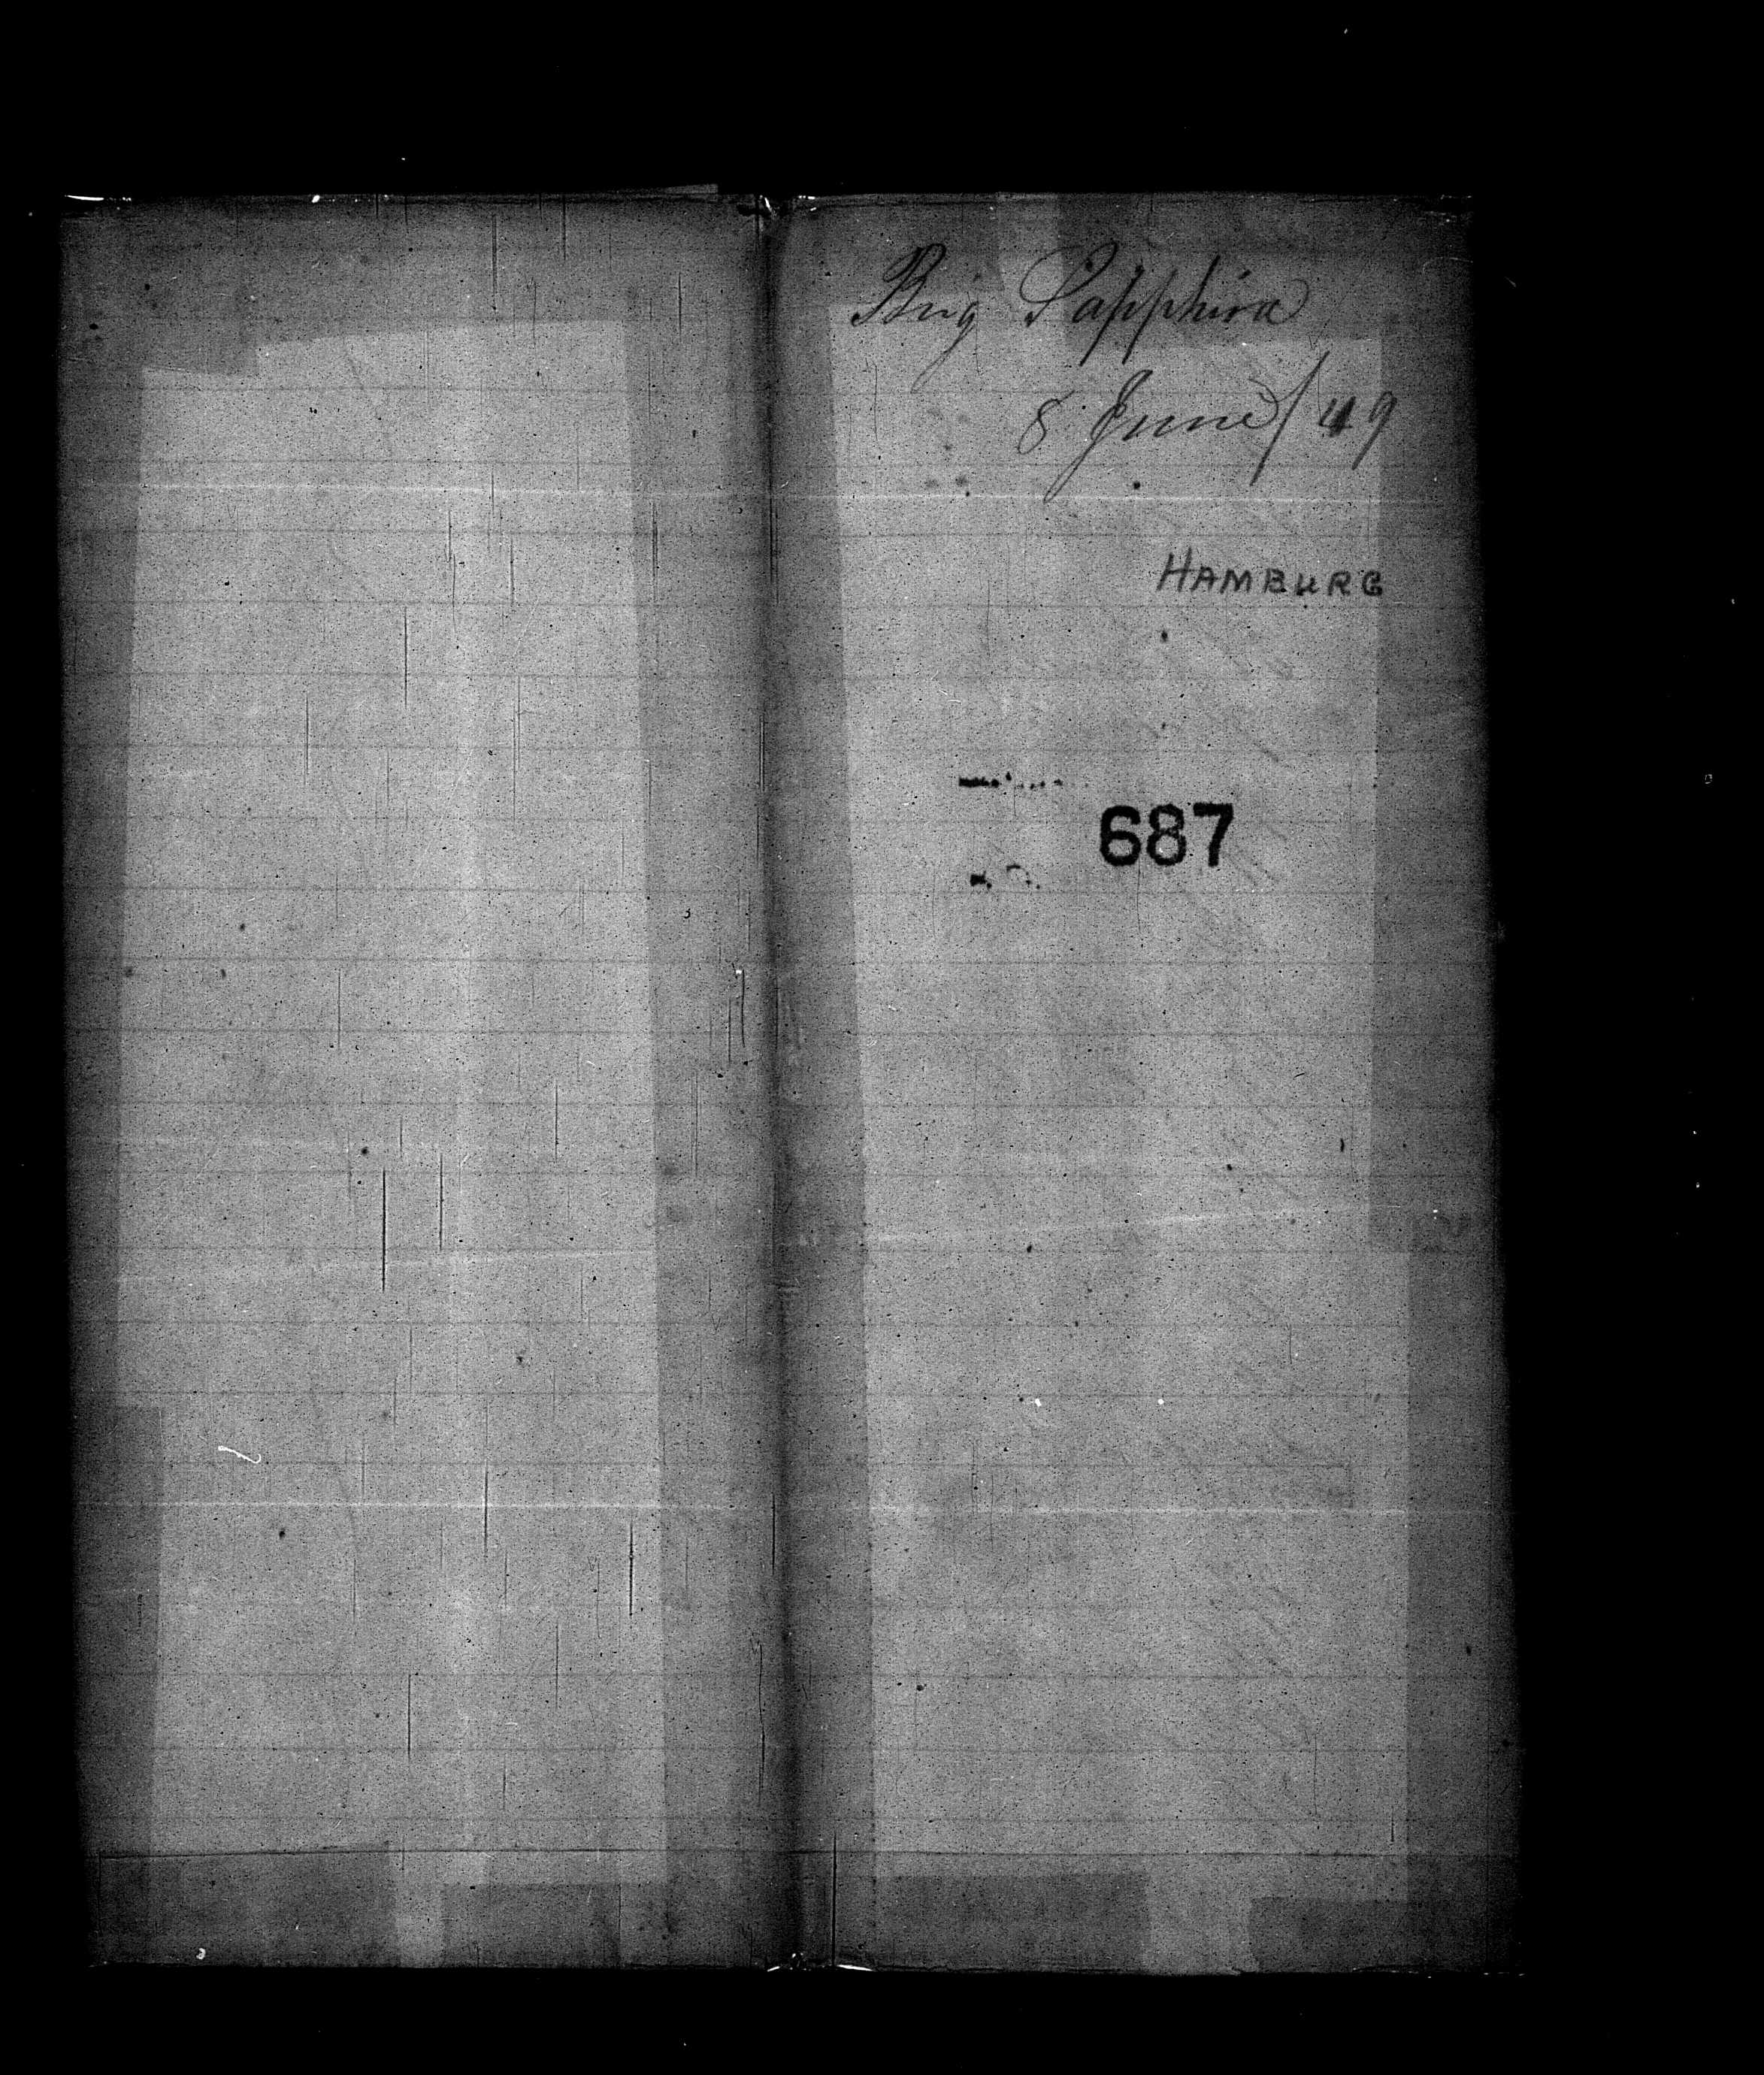 Brig Sapphira
8 June/49
HAMBURG
687